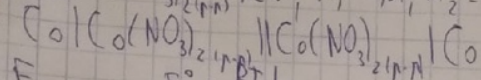 Co|Co(NO₃)₂(р-р)||Co(NO₃)₂(р-р)|Co